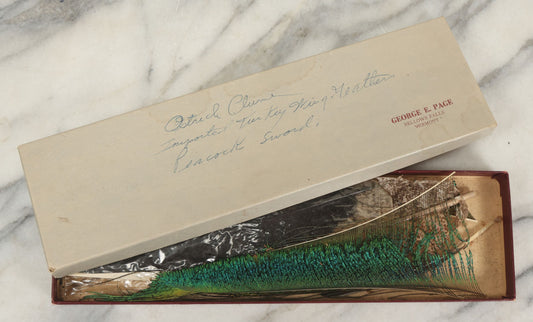 Ostrich Plume
Imported Turkey Wing Feather.
Peacock Sword.
GEORGE E. PAGE
BELLOWS FALLS
VERMONT